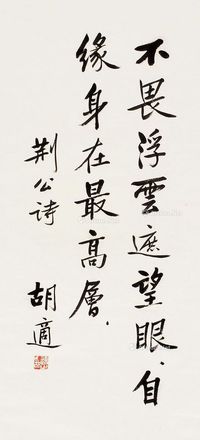 不畏浮雲遮望眼，自
緣身在最高層．
荆公诗
胡適